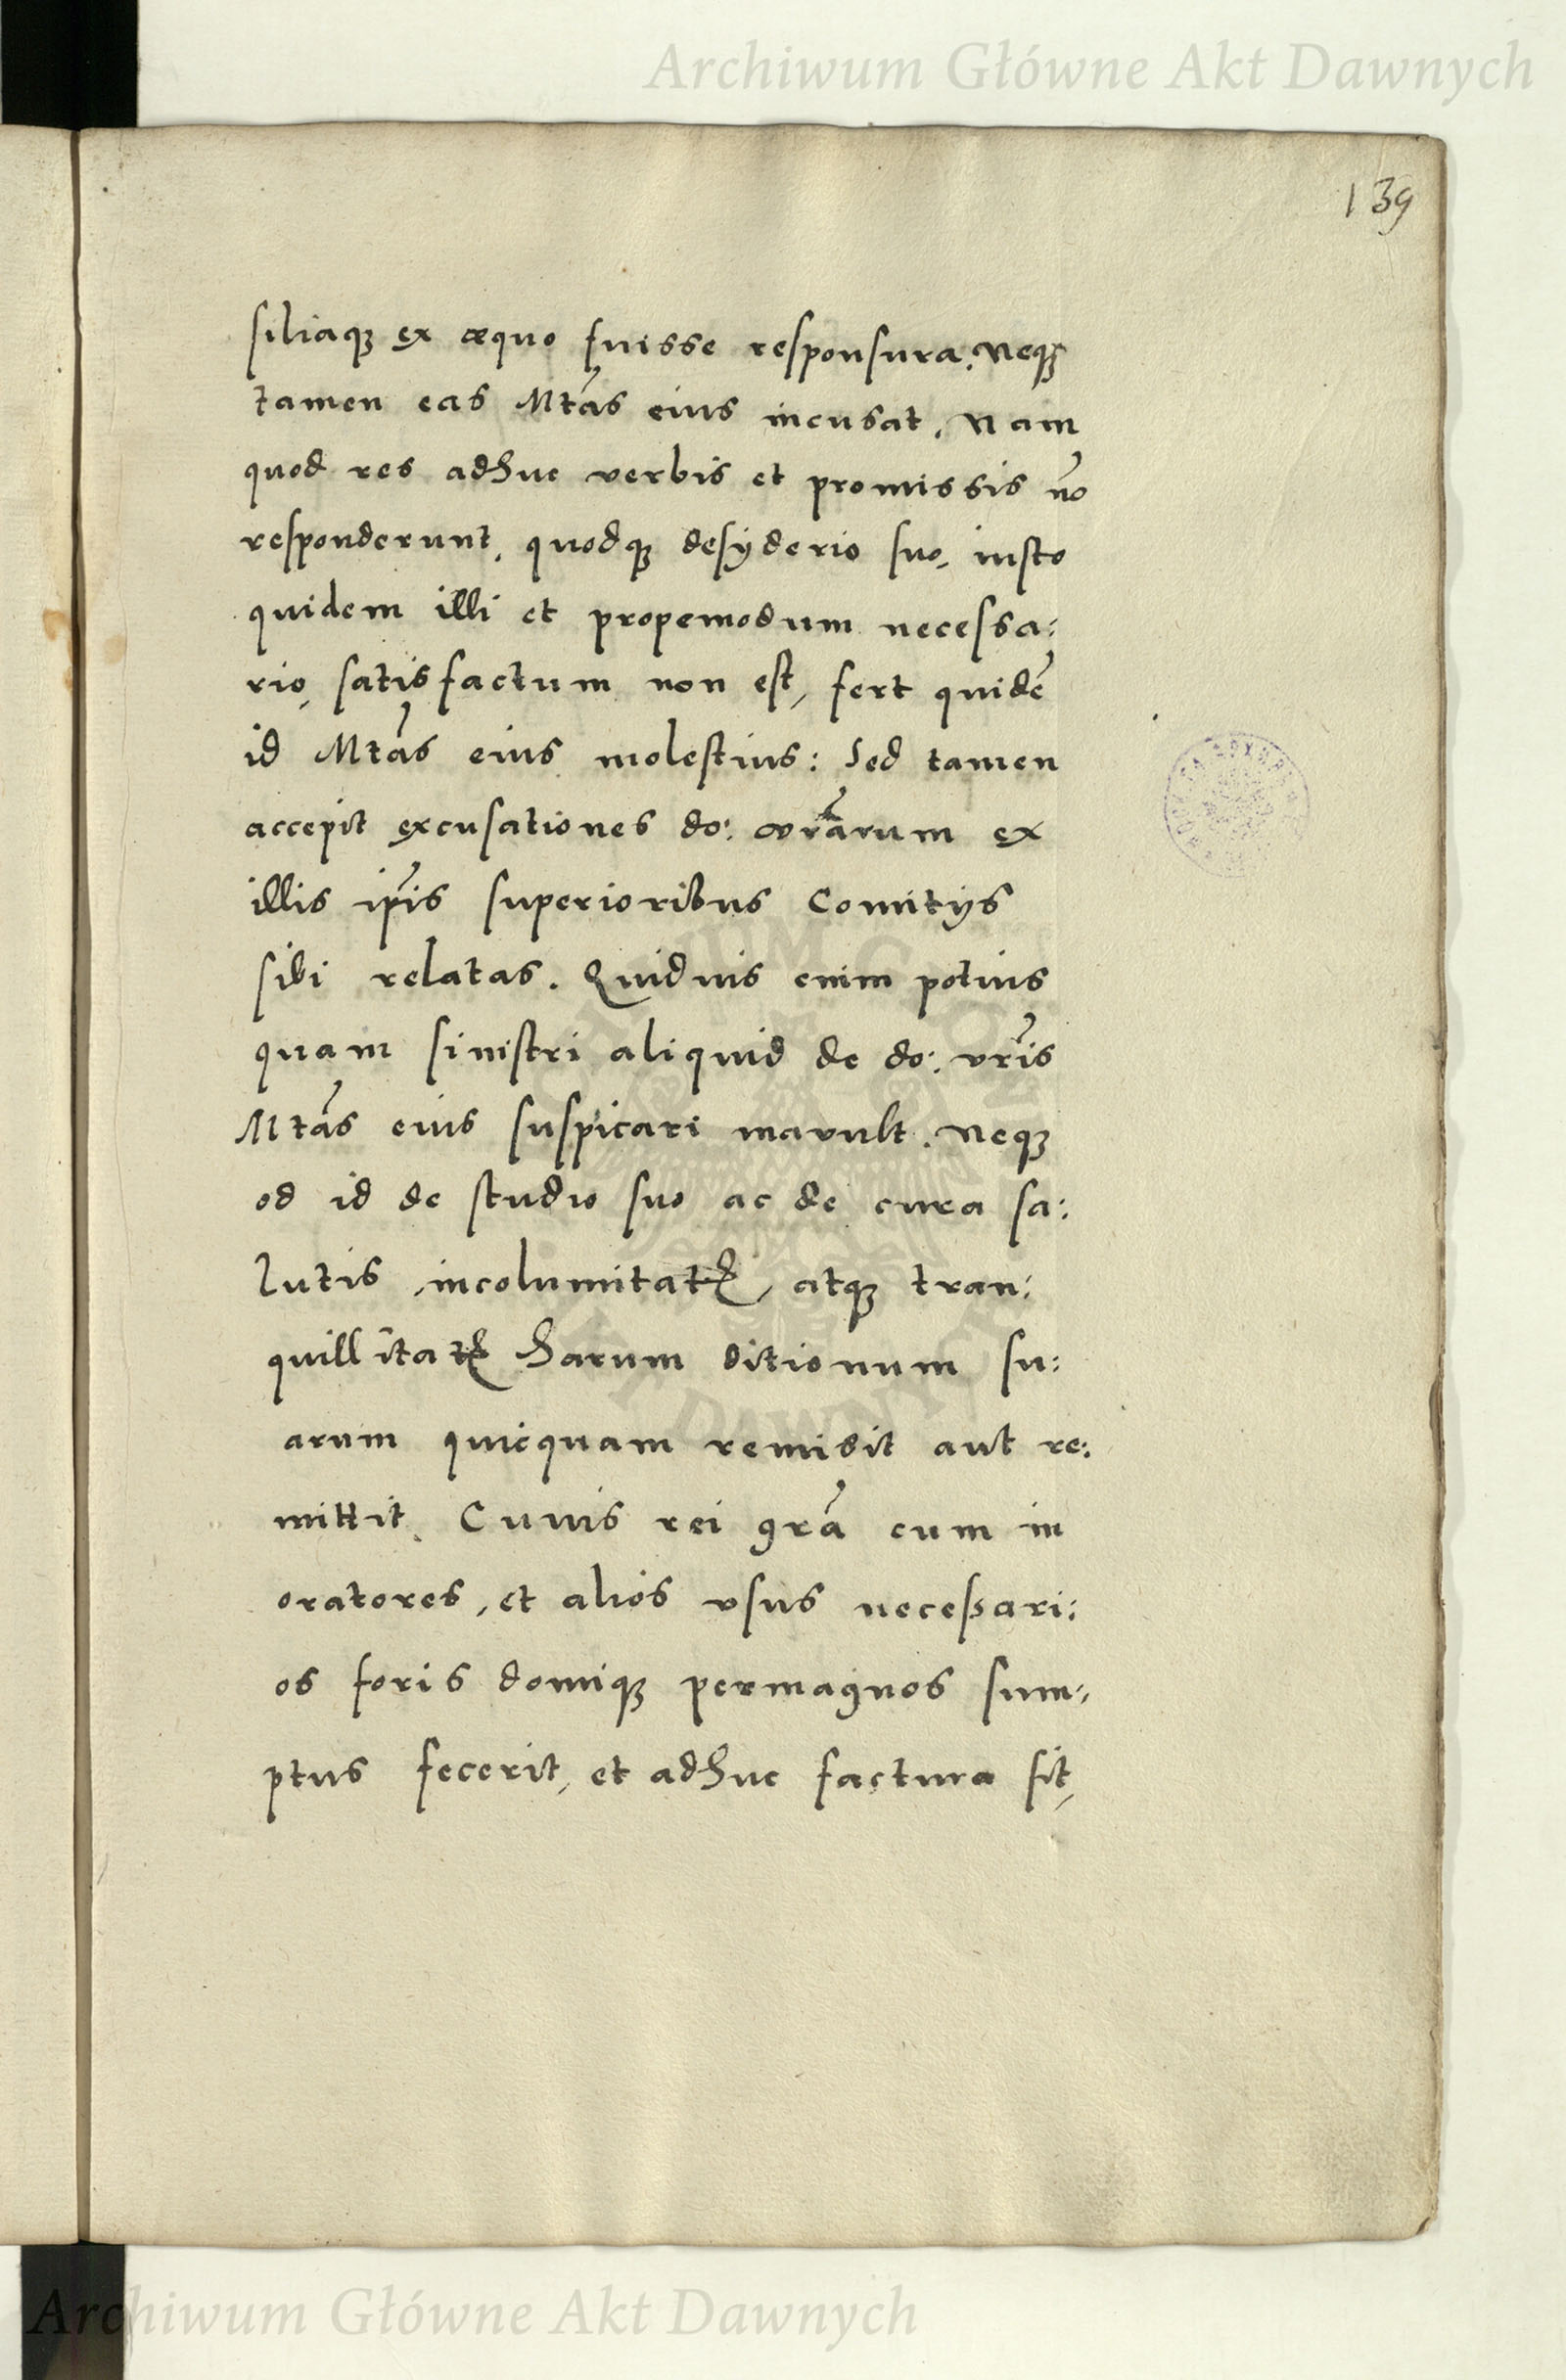 Archiwum Główne Akt Dawnych
139
siliaqꝫ ex æquo fuisse responsura. Neqꝫ
tamen eas Mtãs eius incusat. Nam
quod res adhuc verbis et promissis nõ
responderunt, quodqꝫ desyderio suo, iusto
quidem illi et propemodum necessa:
rio, satisfactum non est, fert quidẽ
id Mtãs eius molestius: Sed tamen
accepit excusationes do: vrãrum ex
illis ip̃is superioribus Comitijs
sibi relatas. Quiduis enim potius
quam sinistri aliquid de do: vrĩs
Mtãs eius suspicari mavult. Neqꝫ
ob id de studio suo ac de cura sa:
lutis, incolumitatꝭ, atqꝫ tran:
quillitatꝭ harum ditionum su:
arum quicquam remisit aut re:
mittit. Cuius rei grã cum in
oratores, et alios vsus necessari:
os foris domiqꝫ permagnos sum:
ptus fecerit, et adhuc factura sit,
Archiwum Główne Akt Dawnych